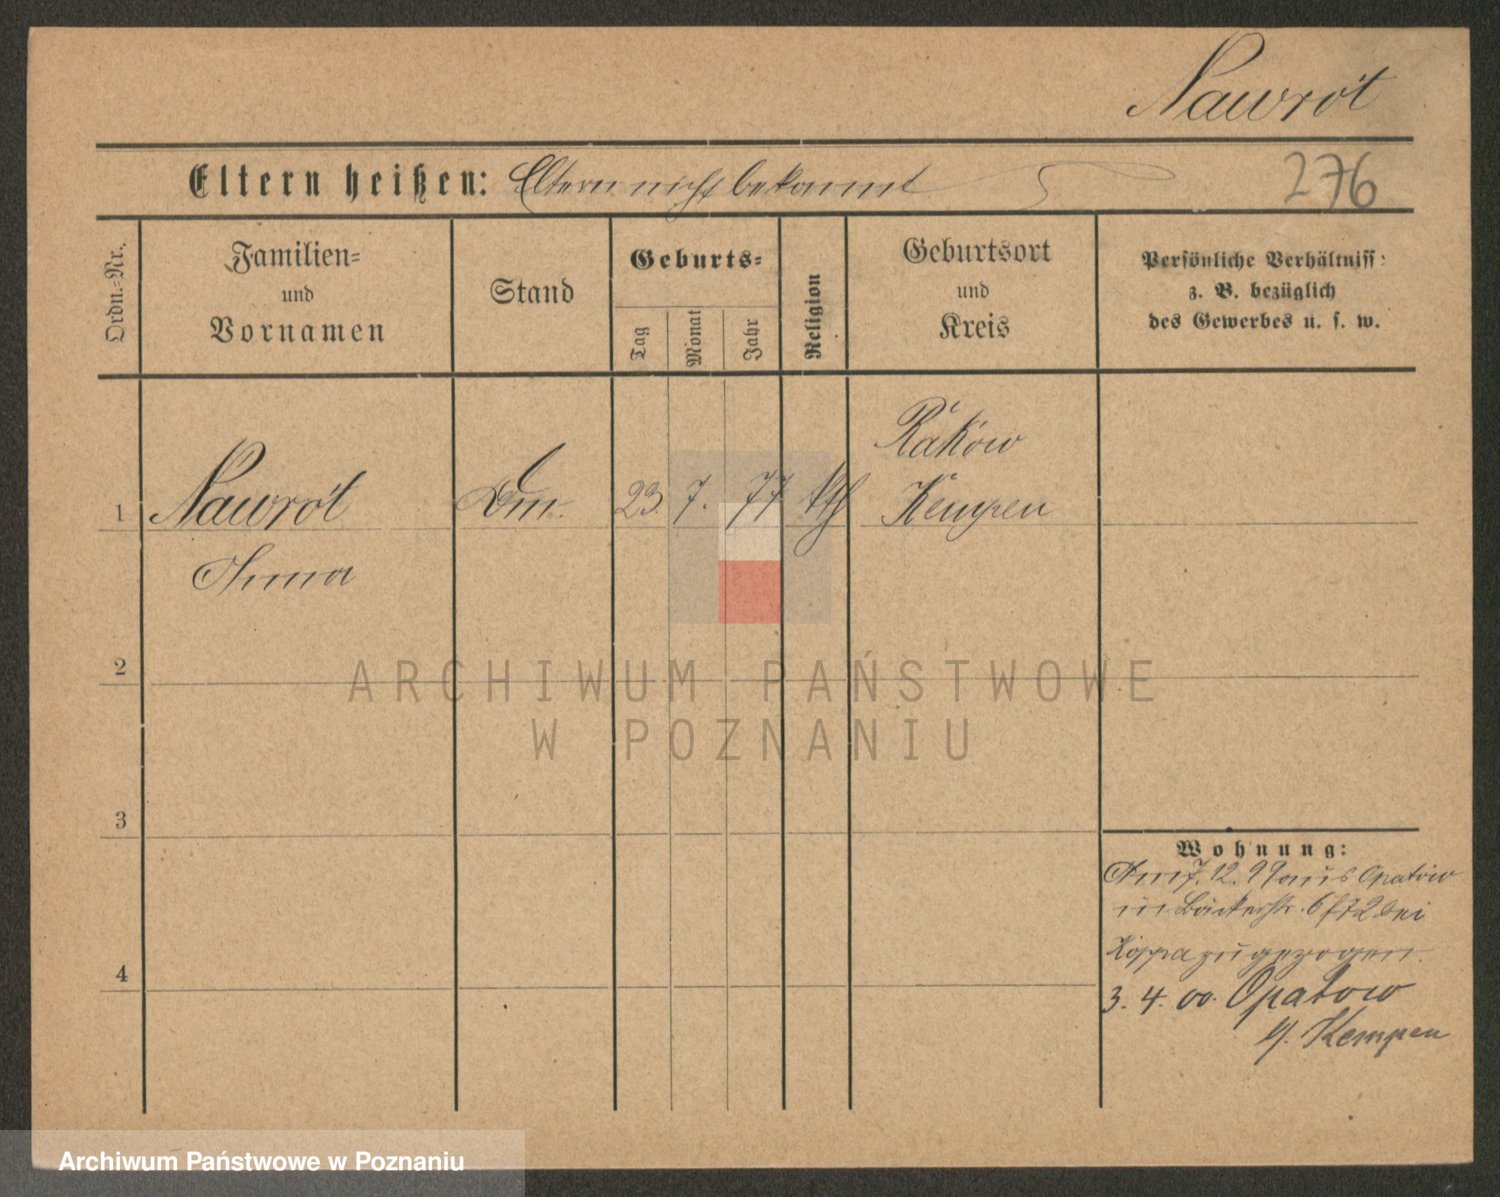 Nawrót
Eltern heißen: Eltern nicht bekannt
276
Ordn.-Nr.
Familien-
und
Vornamen
Stand
Geburts-
Tag
Monat
Jahr
Religion
Geburtsort
und
Kreis
Persönliche Verhältniss:
z. B. bezüglich
des Gewerbes u. s. w.
1 Nawrót Dm. 23. 7. 77 kth Raków
Kempen
Anna
2
3
4
Wohnung:
Am 7. 12. 99 aus Opatów
in Bäckerstr. 6 bei
zugezogen.
3. 4. 00. Opatow
Kempen
ARCHIWUM PAŃSTWOWE
W POZNANIU
Archiwum Państwowe w Poznaniu